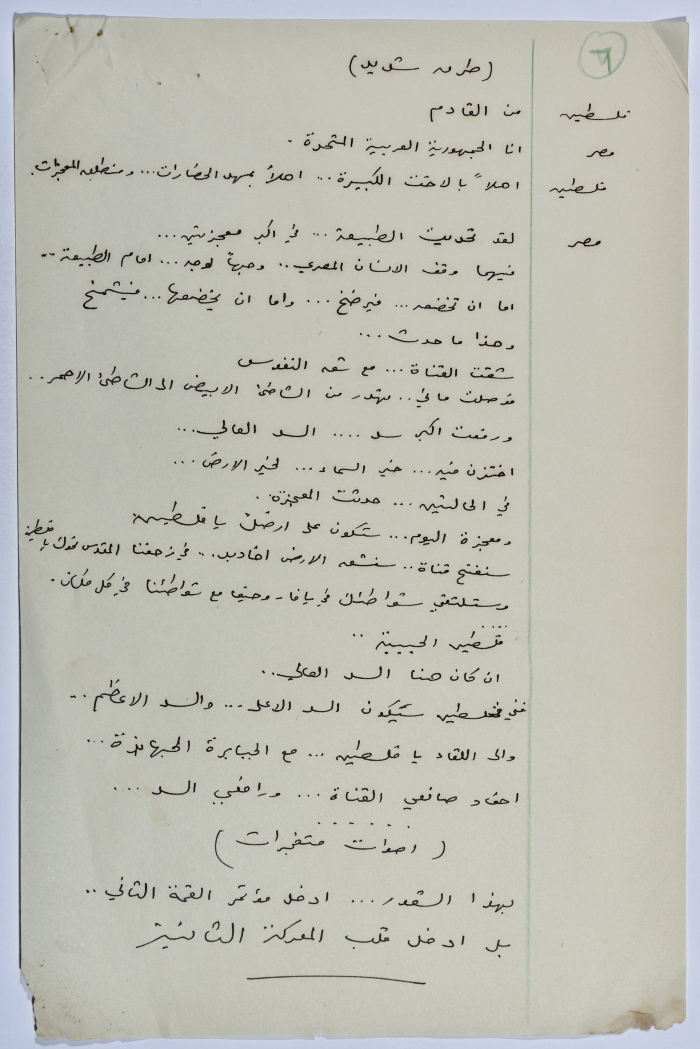 ٦
(طرق شديد)
فلسطين من القادم
مصر انا الجمهورية العربية المتحدة .
فلسطين اهلاً بالاخت الكبيرة ... اهلاً بمهد الحضارات ... ومنطلق المعجزات.
مصر لقد تحديت الطبيعة ... في اكبر معجزتين ...
فيهما وقف الانسان المصري .. وجهاً لوجه ... امام الطبيعة ..
اما ان تخضعه ... فيرضخ ... واما ان يخضعها ... فيشمخ
وهذا ما حدث ...
شقت القناة ... مع شق النفوس
فوصلت مائي .. يهدر من الشاطئ الابيض الى الشاطئ الاحمر ..
ورفعت اكبر سد .... السد العالي ...
اختزن فيه ... خير السماء ... لخير الارض ...
في الحالتين ... حدثت المعجزة . .
ومعجزة اليوم ... ستكون على ارضك يا فلسطين
سنفتح قناة .. سنشق الارض اخاديد ... في زحفنا المقدس نحوك يا فلسطين
وستلتقي شواطئك في يافا وحيفا مع شواطئنا في كل مكان .
فلسطين الحبيبة ..
ان كان هنا السد العالي ..
ففي فلسطين سيكون السد الاعلى ... والسد الاعظم ..
والى اللقاء يا فلسطين ... مع الجبابرة الجهابذة ...
احفاد صانعي القناة ... ورافعي السد ...
( اصوات متفجرات )
بهذا الشعور ... ادخل مؤتمر القمة الثاني ..
بل ادخل قلب المعركة الثانية